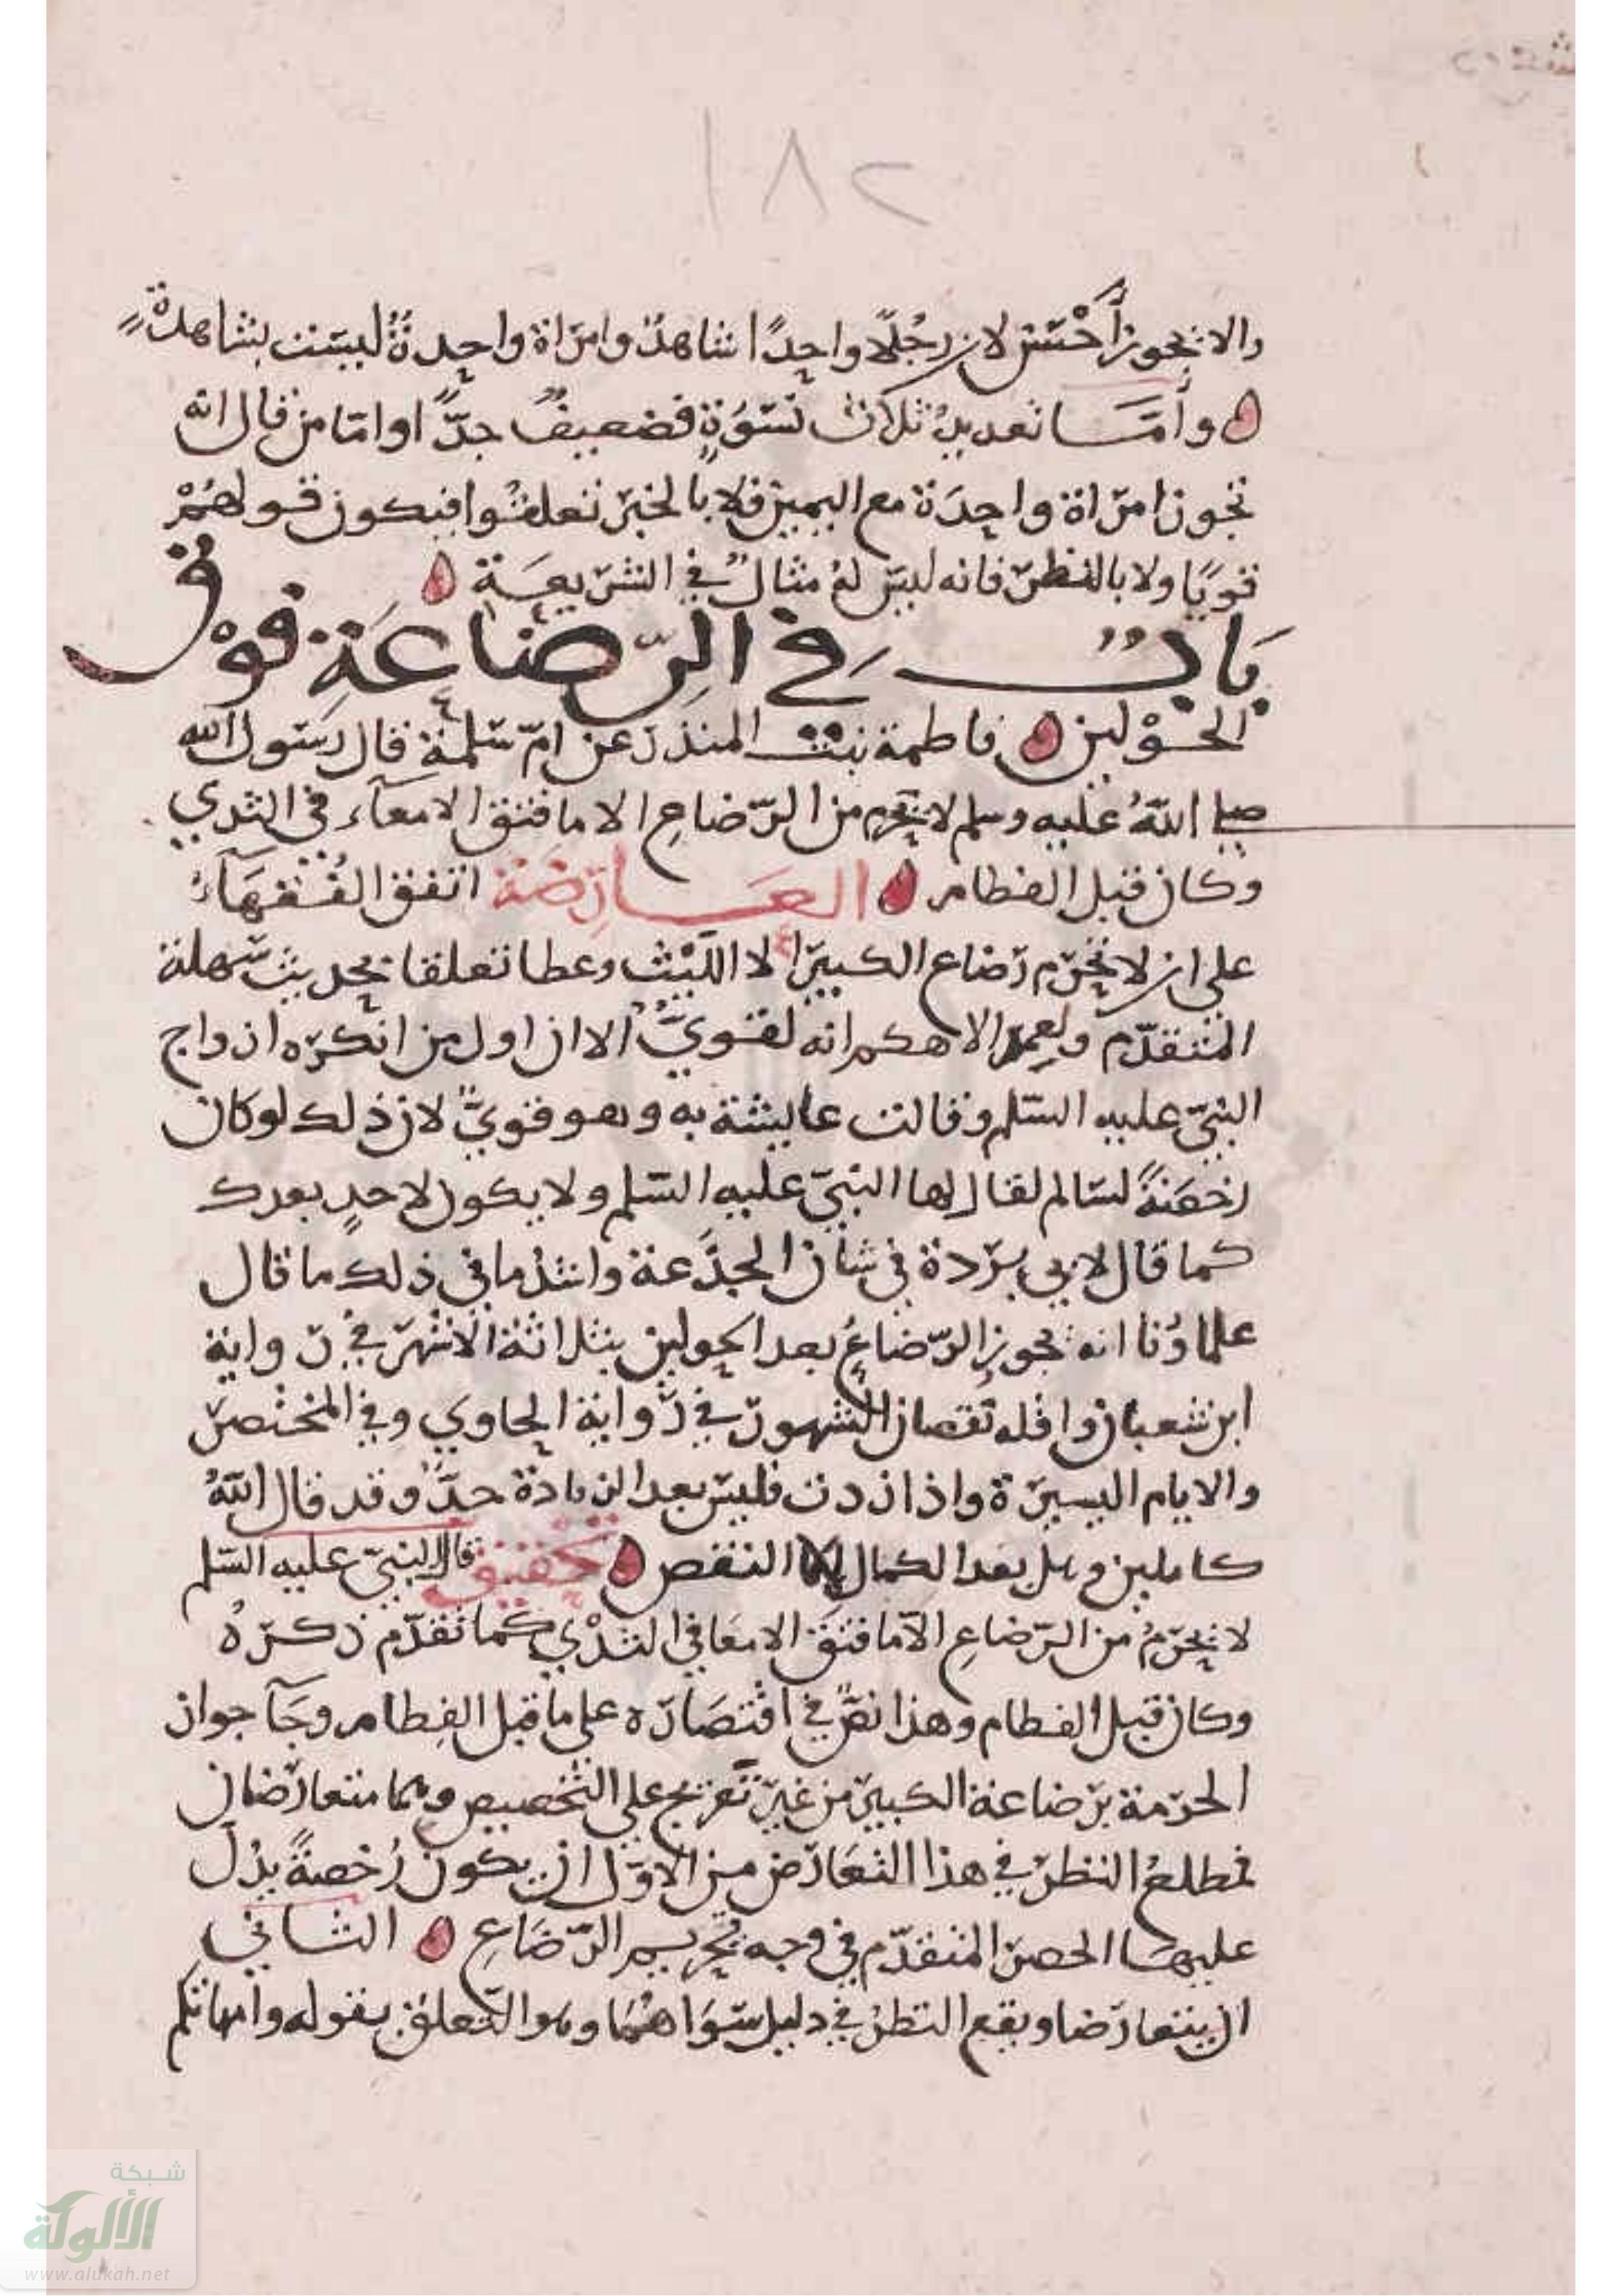 ١٨٢
والا يجوز أحسن لان رجلًا واحدًا شاهدٌ وامراة واحدةٌ ليست بشاهدةٍ
وأمَّا تعديل ثلاث نسوةٍ فضعيفٌ جدًّا واما من قال انه
تجوز امراة واحدة مع اليمين فلا بالخبر تعلقوا فيكون قولهمْ
قويًا ولا بالنظر فانه ليس لهُ مثالٌ في الشريعة
بَابٌ في الرِّضاعَةِ فوْق
الحوْلين فاطمة بنت المنذر عن امّ سلمة قال رسول الله
صلى اللهُ عليه وسلم لا يحرم من الرّضاعِ الا ما فتق الامعآء في الثدي
وكان قبل الفطام العَارِضَة اتفق الفُقهَآءُ
على ان لا يحرّم رضاع الكبير الا الليْث وعطا تعلقا بحديث سهلة
المتقدّم ولعمر الاهكم انه لقويٌّ الا ان اول من انكره ازواج
النبيّ عليه السلم وقالت عايشة به وهو قويٌّ لان ذلك لو كان
رخصةً لسالم لقال لها النبيّ عليه السّلم ولا يكون لاحدٍ بعدك
كما قال لابي بردة في شان الجذَعة واشذ ما في ذلك ما قال
علماؤنا انه يجوز الرّضاعُ بعد الحولين بثلاثة الاشهر في رواية
ابن شعبان واقله نقصان الشهور في رواية الحاوي وفي المخْتصر
والايام اليسيرة واذا زدت فليس بعد الزيادة حدٌّ وقد قال اللهُ
كاملين وهل بعد الكمال الا النقص تحقيق قال النبيّ عليه السّلم
لا يحرّمُ من الرّضاعِ الّا ما فتقَ الامعا في الثدْي كما تقدّم ذكرهُ
وكان قبل الفطام وهذا نصٌّ في اقْتصَاره على ما قبل الفِطام وجَآ جواز
الحرمة برضاعة الكبير من غير تعريج على التخصيص وهما متعارضان
فمطلعُ النظر في هذا التعَارض من الاوّل ان يكون رُخصةً يدُل
عليها الحصر المتقدّم في وجه تحريم الرّضَاعِ الثاني
ان يتعارضا ويقع النظرُ في دليل سوَاهُما وهو التّعلق بقوله وامهاتكم
شبكة
الألوكة
www.alukah.net